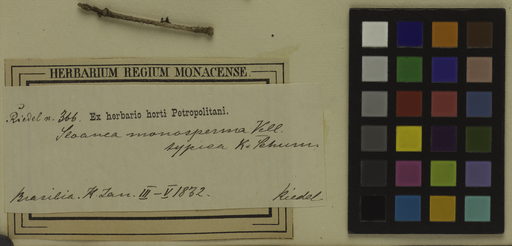 HERBARIUM REGIUM MONACENSE.
Riedel n. 366. Ex herbario horti Petropolitani.
Sloanea monosperma Vell.
typica K. Schum.
Brasilia. R. Jan. III - V 1832. Riedel